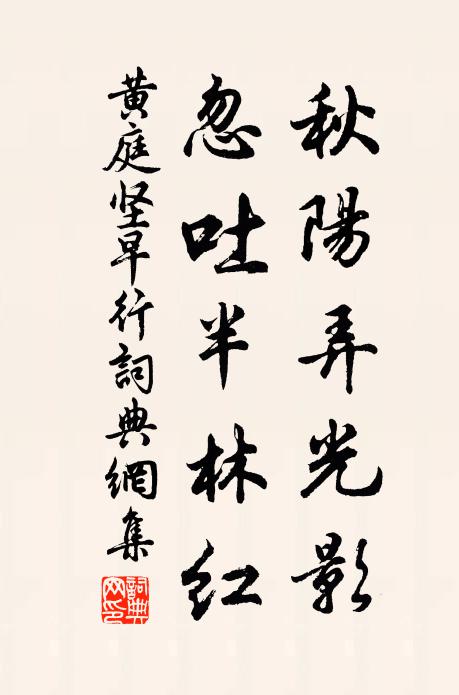 秋陽弄光影
忽吐半林紅
黃庭坚早行詞典網集
詞典网印